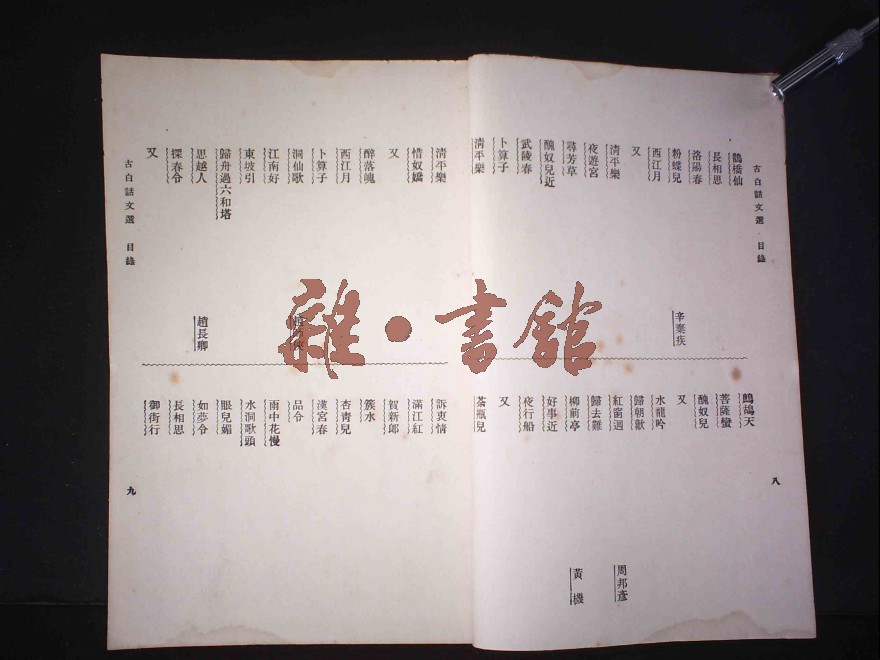 古白話文選 目錄
鵲橋仙
長相思
洛陽春
粉蝶兒 辛棄疾
西江月
又
清平樂
夜遊宮
尋芳草
醜奴兒近
武陵春
卜算子
清平樂
鷓鴣天
菩薩蠻
醜奴兒
又
水龍吟
歸朝歡
紅窗迥 周邦彥
歸去難
柳前亭 黃機
好事近
夜行船
又
茶瓶兒
八
清平樂
惜奴嬌
又
醉落魄
西江月
卜算子
洞仙歌
江南好
東坡引
歸舟過六和塔
思越人 趙長卿
探春令
又
訴衷情
滿江紅
賀新郎
簇水
杏青兒
漢宮春
品令
雨中花慢
水洞歌頭
眼兒媚
如夢令
長相思
御街行
古白話文選 目錄
九
雜·書館